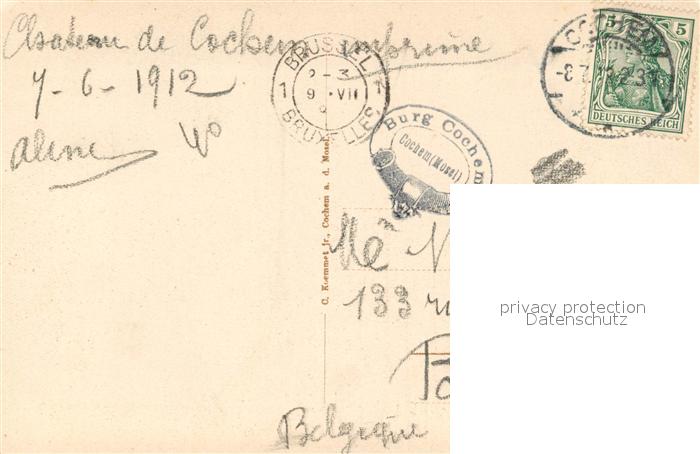 Chateau de Cochem imprimé
7-6-1912
BRUSSEL
1 1
2-3
9 ·VII
BRUXELLES
COCHEM
5 5
DEUTSCHES REICH
Burg Cochem
Cochem (Mosel)
C. Koemmet jr., Cochem a. d. Mosel.
133
Belgique
privacy protection
Datenschutz